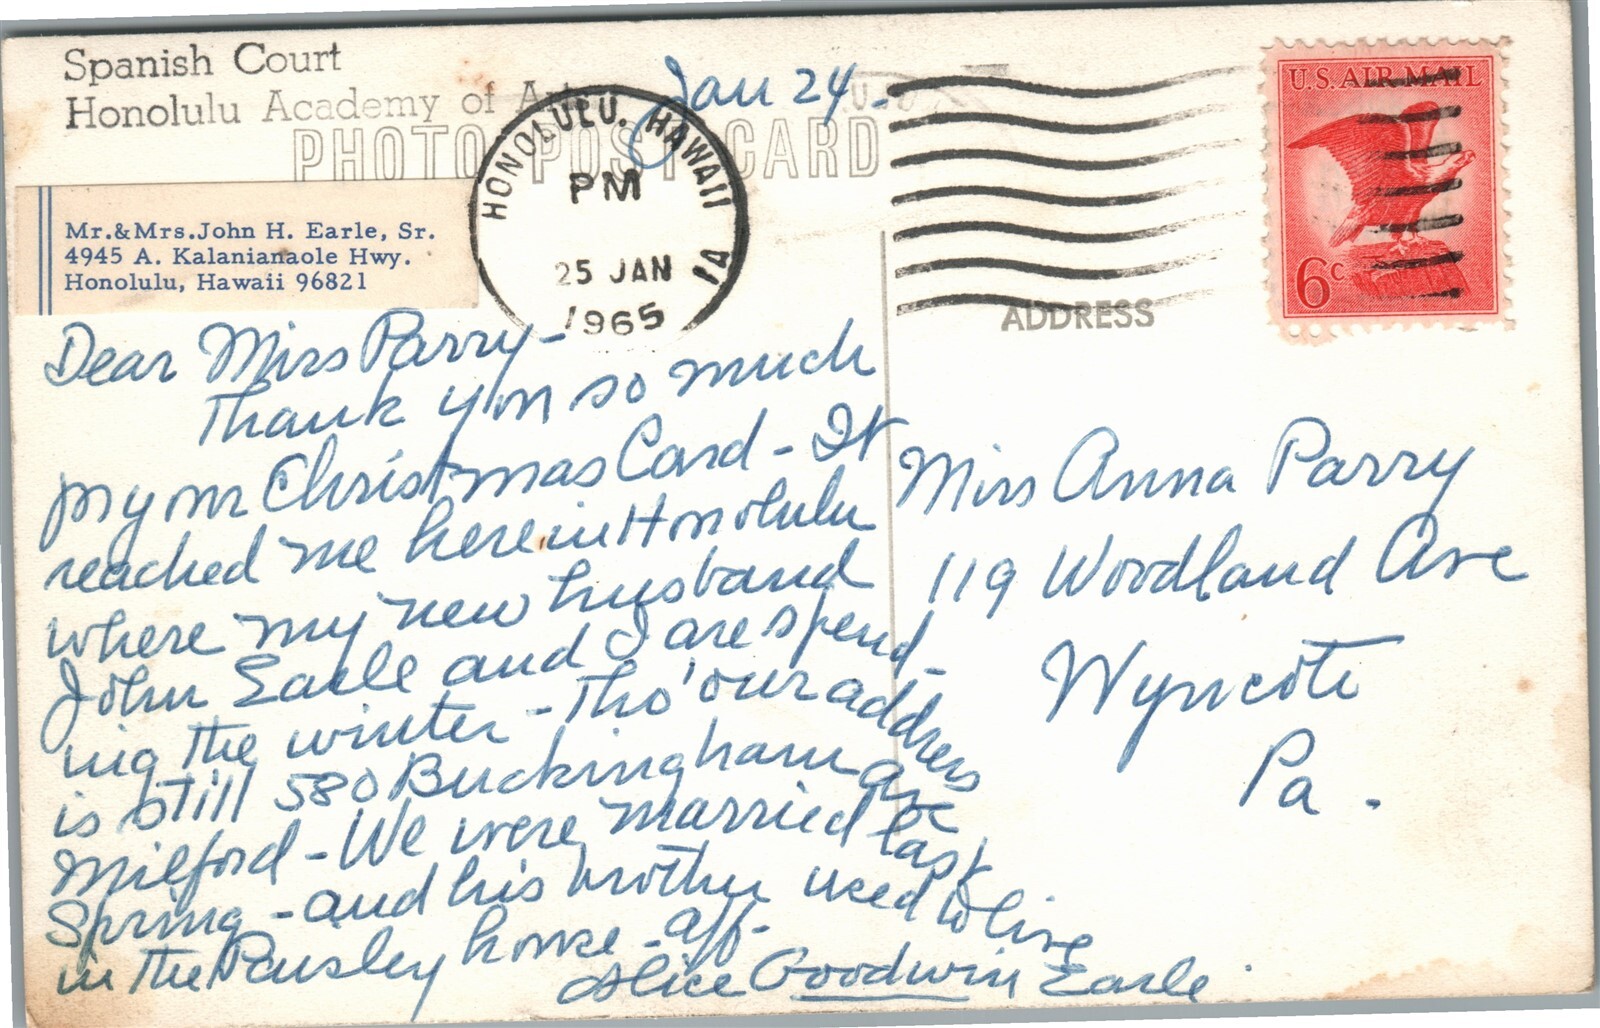 Spanish Court
Honolulu Academy of Arts
PHOTO POST CARD
Jan 24 -
HONOLULU. HAWAII
PM
25 JAN
1965
1A
U.S. AIR MAIL
6c
Mr.&Mrs.John H. Earle, Sr.
4945 A. Kalanianaole Hwy.
Honolulu, Hawaii 96821
ADDRESS
Dear Miss Parry -
Thank you so much
for your Christmas Card - It
reached me here in Honolulu
where my new husband
John Earle and I are spend-
ing the winter - Tho' our address
is still 580 Buckingham Ave
Milford - We were married last
Spring - and his brother used to live
in the Paisley house - aff -
Alice Goodwin Earle
Miss Anna Parry
119 Woodland Ave
Wyncote
Pa.